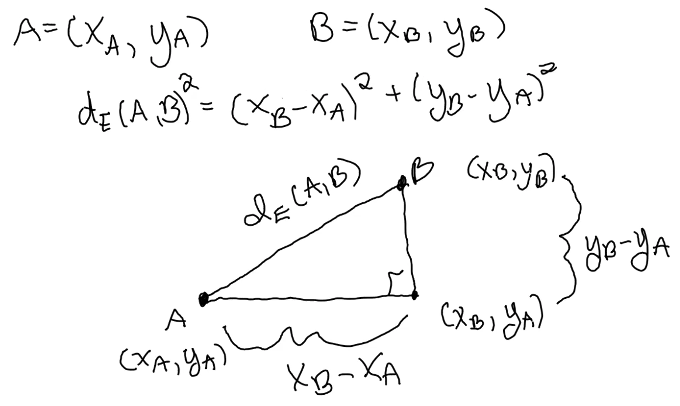 A=(x_A, y_A)    B=(x_B, y_B)
d_E(A,B)^2 = (x_B-x_A)^2 + (y_B-y_A)^2
d_E(A,B)
B
(x_B, y_B)
y_B-y_A
A
(x_B, y_A)
(x_A, y_A)
x_B-x_A